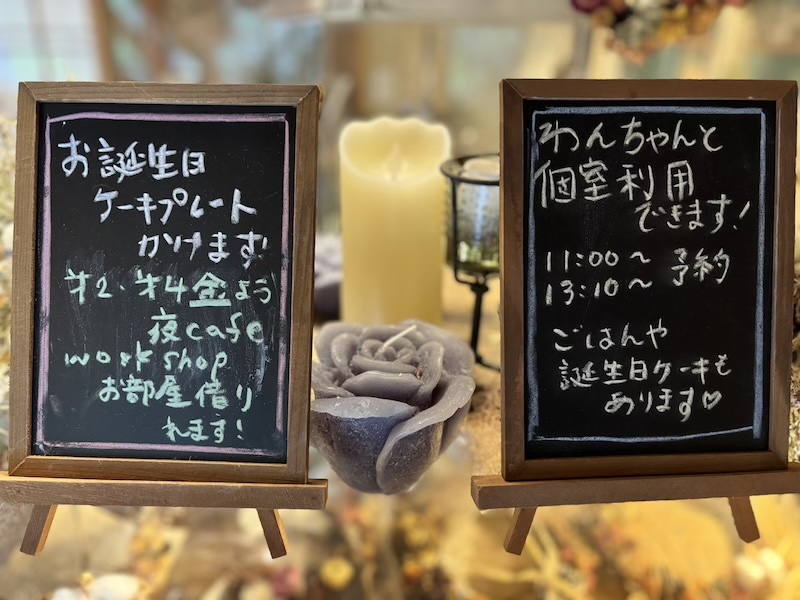 お誕生日
ケーキプレート
かけます!
才2・才4金よう
夜cafe
work shop
お部屋借り
れます!
わんちゃんと
個室利用
できます!
11:00〜 予約
13:10〜
ごはんや
誕生日ケーキも
あります♡